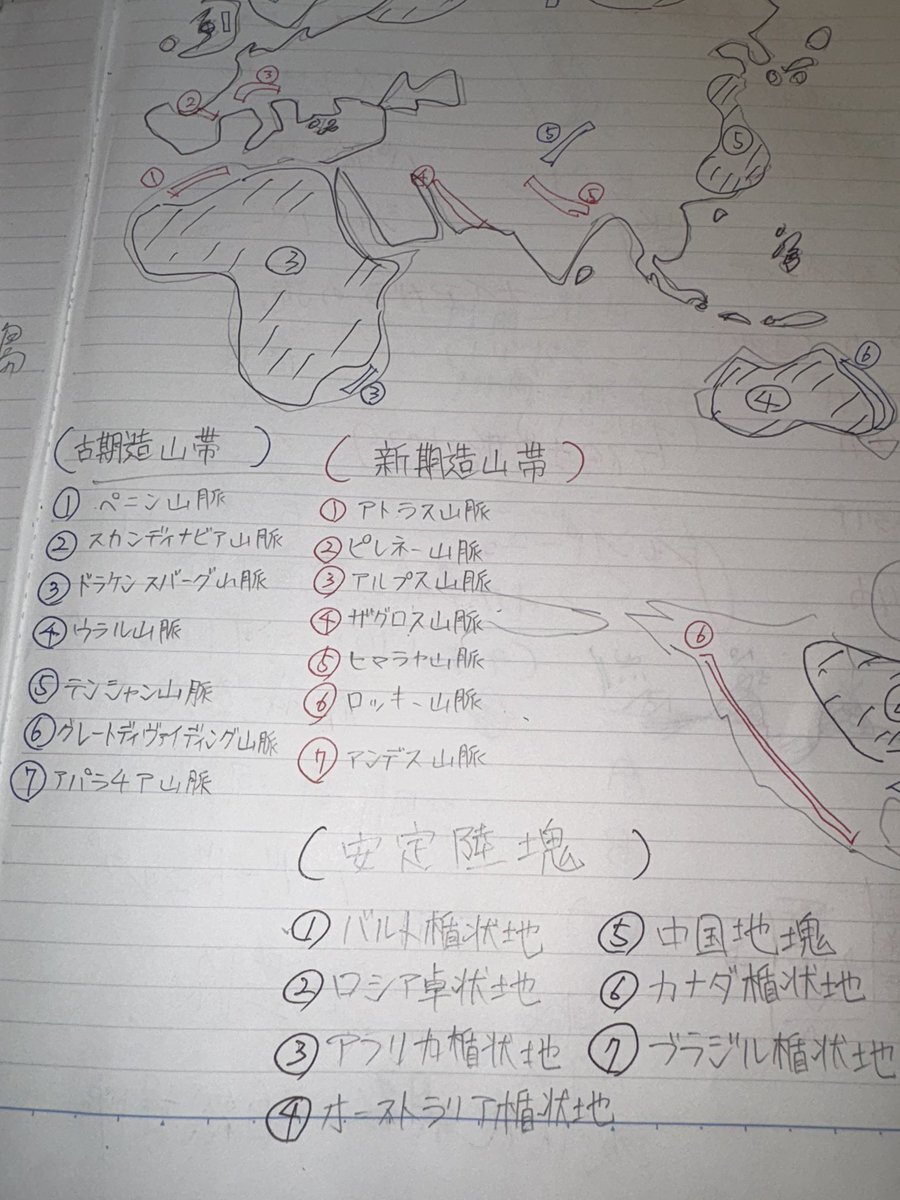 ②
③
⑤
⑤
①
④
⑤
③
⑥
④
③
(古期造山帯)
① ペニン山脈
② スカンディナビア山脈
③ ドラケンスバーグ山脈
④ ウラル山脈
⑤ テンシャン山脈
⑥ グレートディヴァイディング山脈
⑦ アパラチア山脈
(新期造山帯)
① アトラス山脈
② ピレネー山脈
③ アルプス山脈
④ ザグロス山脈
⑤ ヒマラヤ山脈
⑥ ロッキー山脈
⑦ アンデス山脈
⑥
(安定陸塊)
① バルト楯状地
② ロシア卓状地
③ アフリカ楯状地
④ オーストラリア楯状地
⑤ 中国地塊
⑥ カナダ楯状地
⑦ ブラジル楯状地